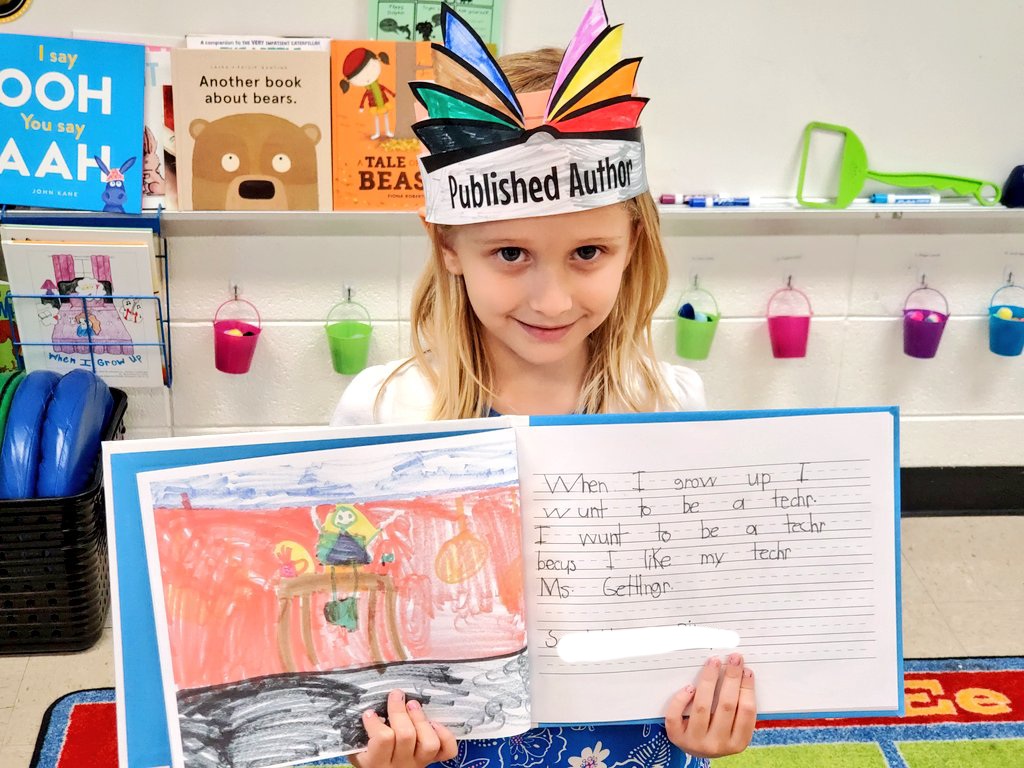 I say
OOH
You say
AAH
JOHN KANE
A COMPANION TO THE VERY IMPATIENT CATERPILLAR
Another book
about bears.
A TALE
BEAS
FIONA ROBER
Published Author
When I Grow Up
When I grow up I
wunt to be a techr.
I wunt to be a techr
becus I like my techr
Ms. Gettlngr.
S
Ee